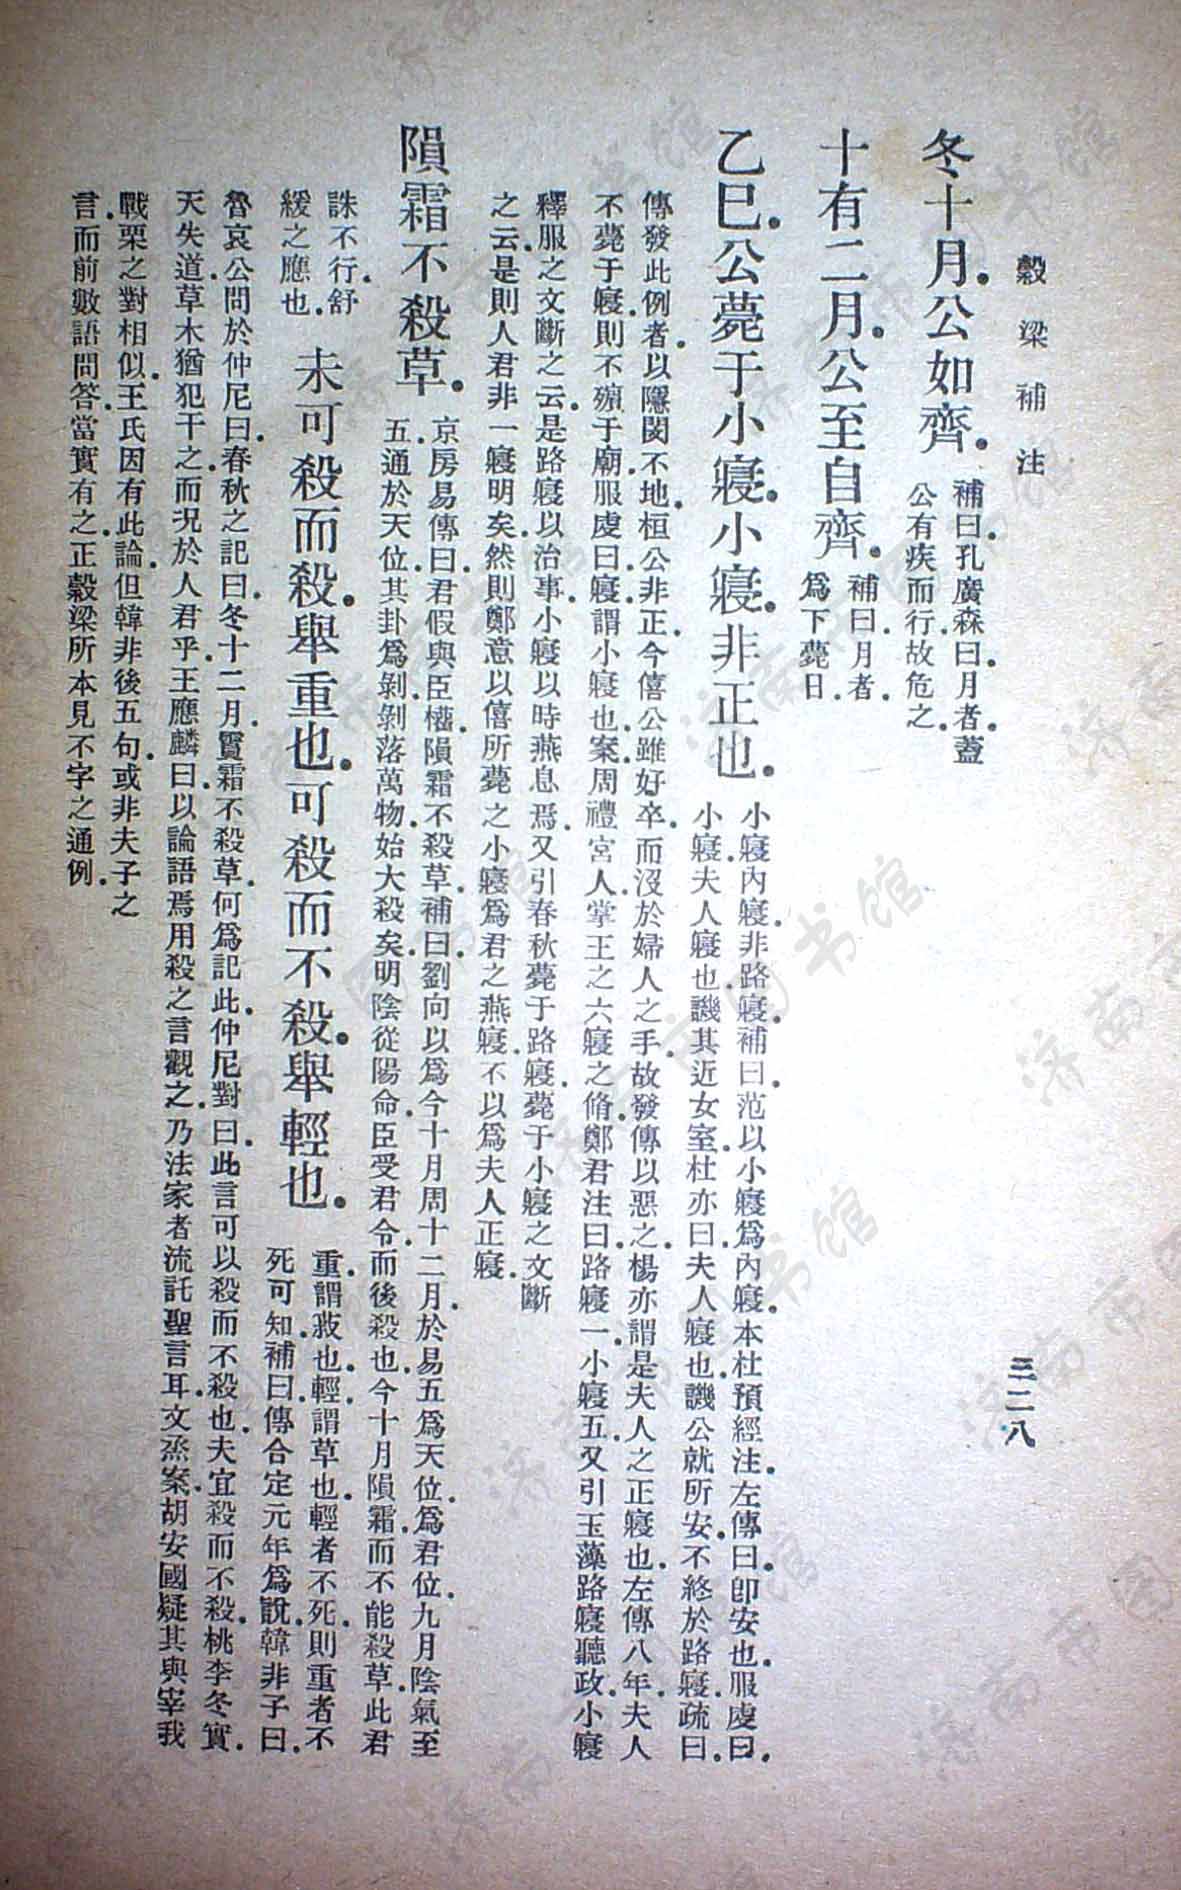 穀梁補注
三二八
冬十月。公如齊。補曰。孔廣森曰。月者。蓋
公有疾而行。故危之。
十有二月。公至自齊。補曰。月者。
爲下薨日。
乙巳。公薨于小寢。小寢。非正也。小寢。內寢。非路寢。補曰。范以小寢爲內寢。本杜預經注。左傳曰。卽安也。服虔曰。
小寢。夫人寢也。譏其近女室。杜亦曰。夫人寢也。譏公就所安。不終於路寢。疏曰。
傳發此例者。以隱閔不地。桓公非正。今僖公雖好卒。而沒於婦人之手。故發傳以惡之。楊亦謂是夫人之正寢也。左傳八年。夫人
不薨于寢。則不殯于廟。服虔曰。寢。謂小寢也。案周禮宮人。掌王之六寢之脩。鄭君注曰。路寢一。小寢五。又引玉藻路寢聽政。小寢
釋服之文斷之云。是路寢以治事。小寢以時燕息焉。又引春秋薨于路寢。薨于小寢之文斷
之云。是則人君非一寢明矣。然則鄭意以僖所薨之小寢爲君之燕寢。不以爲夫人正寢。
隕霜不殺草。京房易傳曰。君假與臣權。隕霜不殺草。補曰。劉向以爲今十月周十二月。於易五爲天位。爲君位。九月陰氣至
五通於天位。其卦爲剝。剝落萬物。始大殺矣。明陰從陽命。臣受君令。而後殺也。今十月隕霜。而不能殺草。此君
誅不行。舒
緩之應也。未可殺而殺。舉重也。可殺而不殺。舉輕也。重謂菽也。輕謂草也。輕者不死。則重者不
死可知。補曰。傳合定元年爲說。韓非子曰。
魯哀公問於仲尼曰。春秋之記曰。冬十二月。霣霜不殺草。何爲記此。仲尼對曰。此言可以殺而不殺也。夫宜殺而不殺。桃李冬實。
天失道。草木猶犯干之。而況於人君乎。王應麟曰。以論語焉用殺之言觀之。乃法家者流託聖言耳。文烝案。胡安國疑其與宰我
戰栗之對相似。王氏因有此論。但韓非後五句。或非夫子之
言。而前數語問答。當實有之。正穀梁所本。見不字之通例。